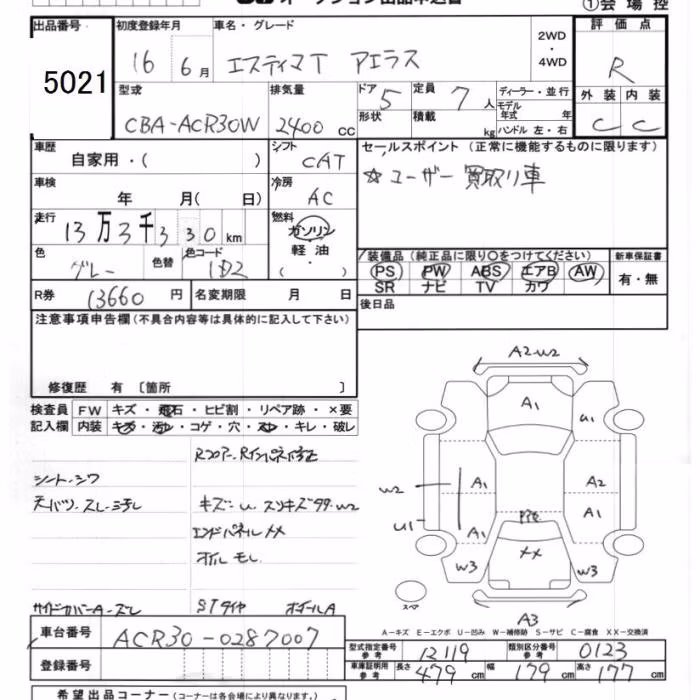 ①会場控
出品番号
5021
初度登録年月
16 6月
車名・グレード
エスティマT アエラス
2WD
・
4WD
評価点
R
外装 内装
C C
型式
CBA-ACR30W
排気量
2400 cc
ドア 5
形状
定員 7人
積載 kg
ディーラー・並行
モデル年式 年
ハンドル 左・右
車歴
自家用・( )
シフト CAT
セールスポイント (正常に機能するものに限ります)
☆ユーザー買取り車
車検
年 月( 日)
冷房 AC
走行
13万3千330km
燃料
ガソリン
軽油
( ・ )
色
グレー
色替
色コード
1D2
装備品 (純正品に限り○をつけてください)
PS PW ABS エアB AW
SR ナビ TV カワ
新車保証書
有・無
R券 13660円
名変期限 月 日
後日品
注意事項申告欄(不具合内容等は具体的に記入して下さい)
修復歴 有 [箇所 ]
検査員記入欄
FW キズ・飛石・ヒビ割・リペア跡・×要
内装 キズ・汚レ・コゲ・穴・スレ・キレ・破レ
シート・シワ
キズ・u
エンドパネルXX
オイルモレ
STタイヤ ホイールA
A2・W2
A1
U1
W2
A1
A2
U1
A1
A1
XX
W3
W3
スペア
A3
A-キズ E-エクボ U-凹み W-補修跡 S-サビ C-腐食 XX-交換済
車台番号 ACR30-0287007
登録番号
型式指定番号 参考 12119
類別区分番号 参考 0123
車庫証明用 参考 長さ 479cm 幅 179cm 高さ 177cm
希望出品コーナー(コーナーは各会場により異なります。)